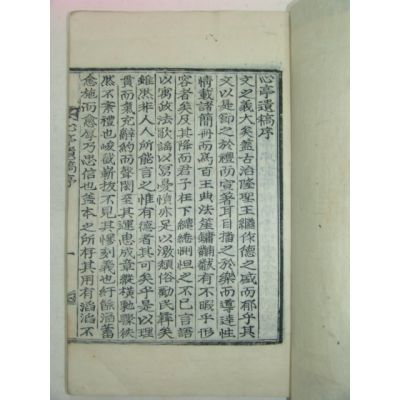 心亭遺稿序
文之義大矣盖古治隆聖王繼作德之盛而郁乎其
文以是節之於禮防宣著耳目播之於樂而導達性
情載諸簡冊而爲百王典法笙鏞黼黻有不暇乎形
容者矣及其降而君子在下繾綣惻怛之不已言語
以寓政法歌謠以寫憂憤亦足以激頹俗動民彛矣
雖然非人人所能言之惟有德者其可矣乎是以理
貫而氣充辭約而聲閎至其運思成章縱橫馳驟俠
然不紊禮也峻截嶄拔不見其慘刻義也紆餘涵蓄
愈施而愈厚乃忠信也盖本之所存其用有滔滔不
心亭遺稿序 一